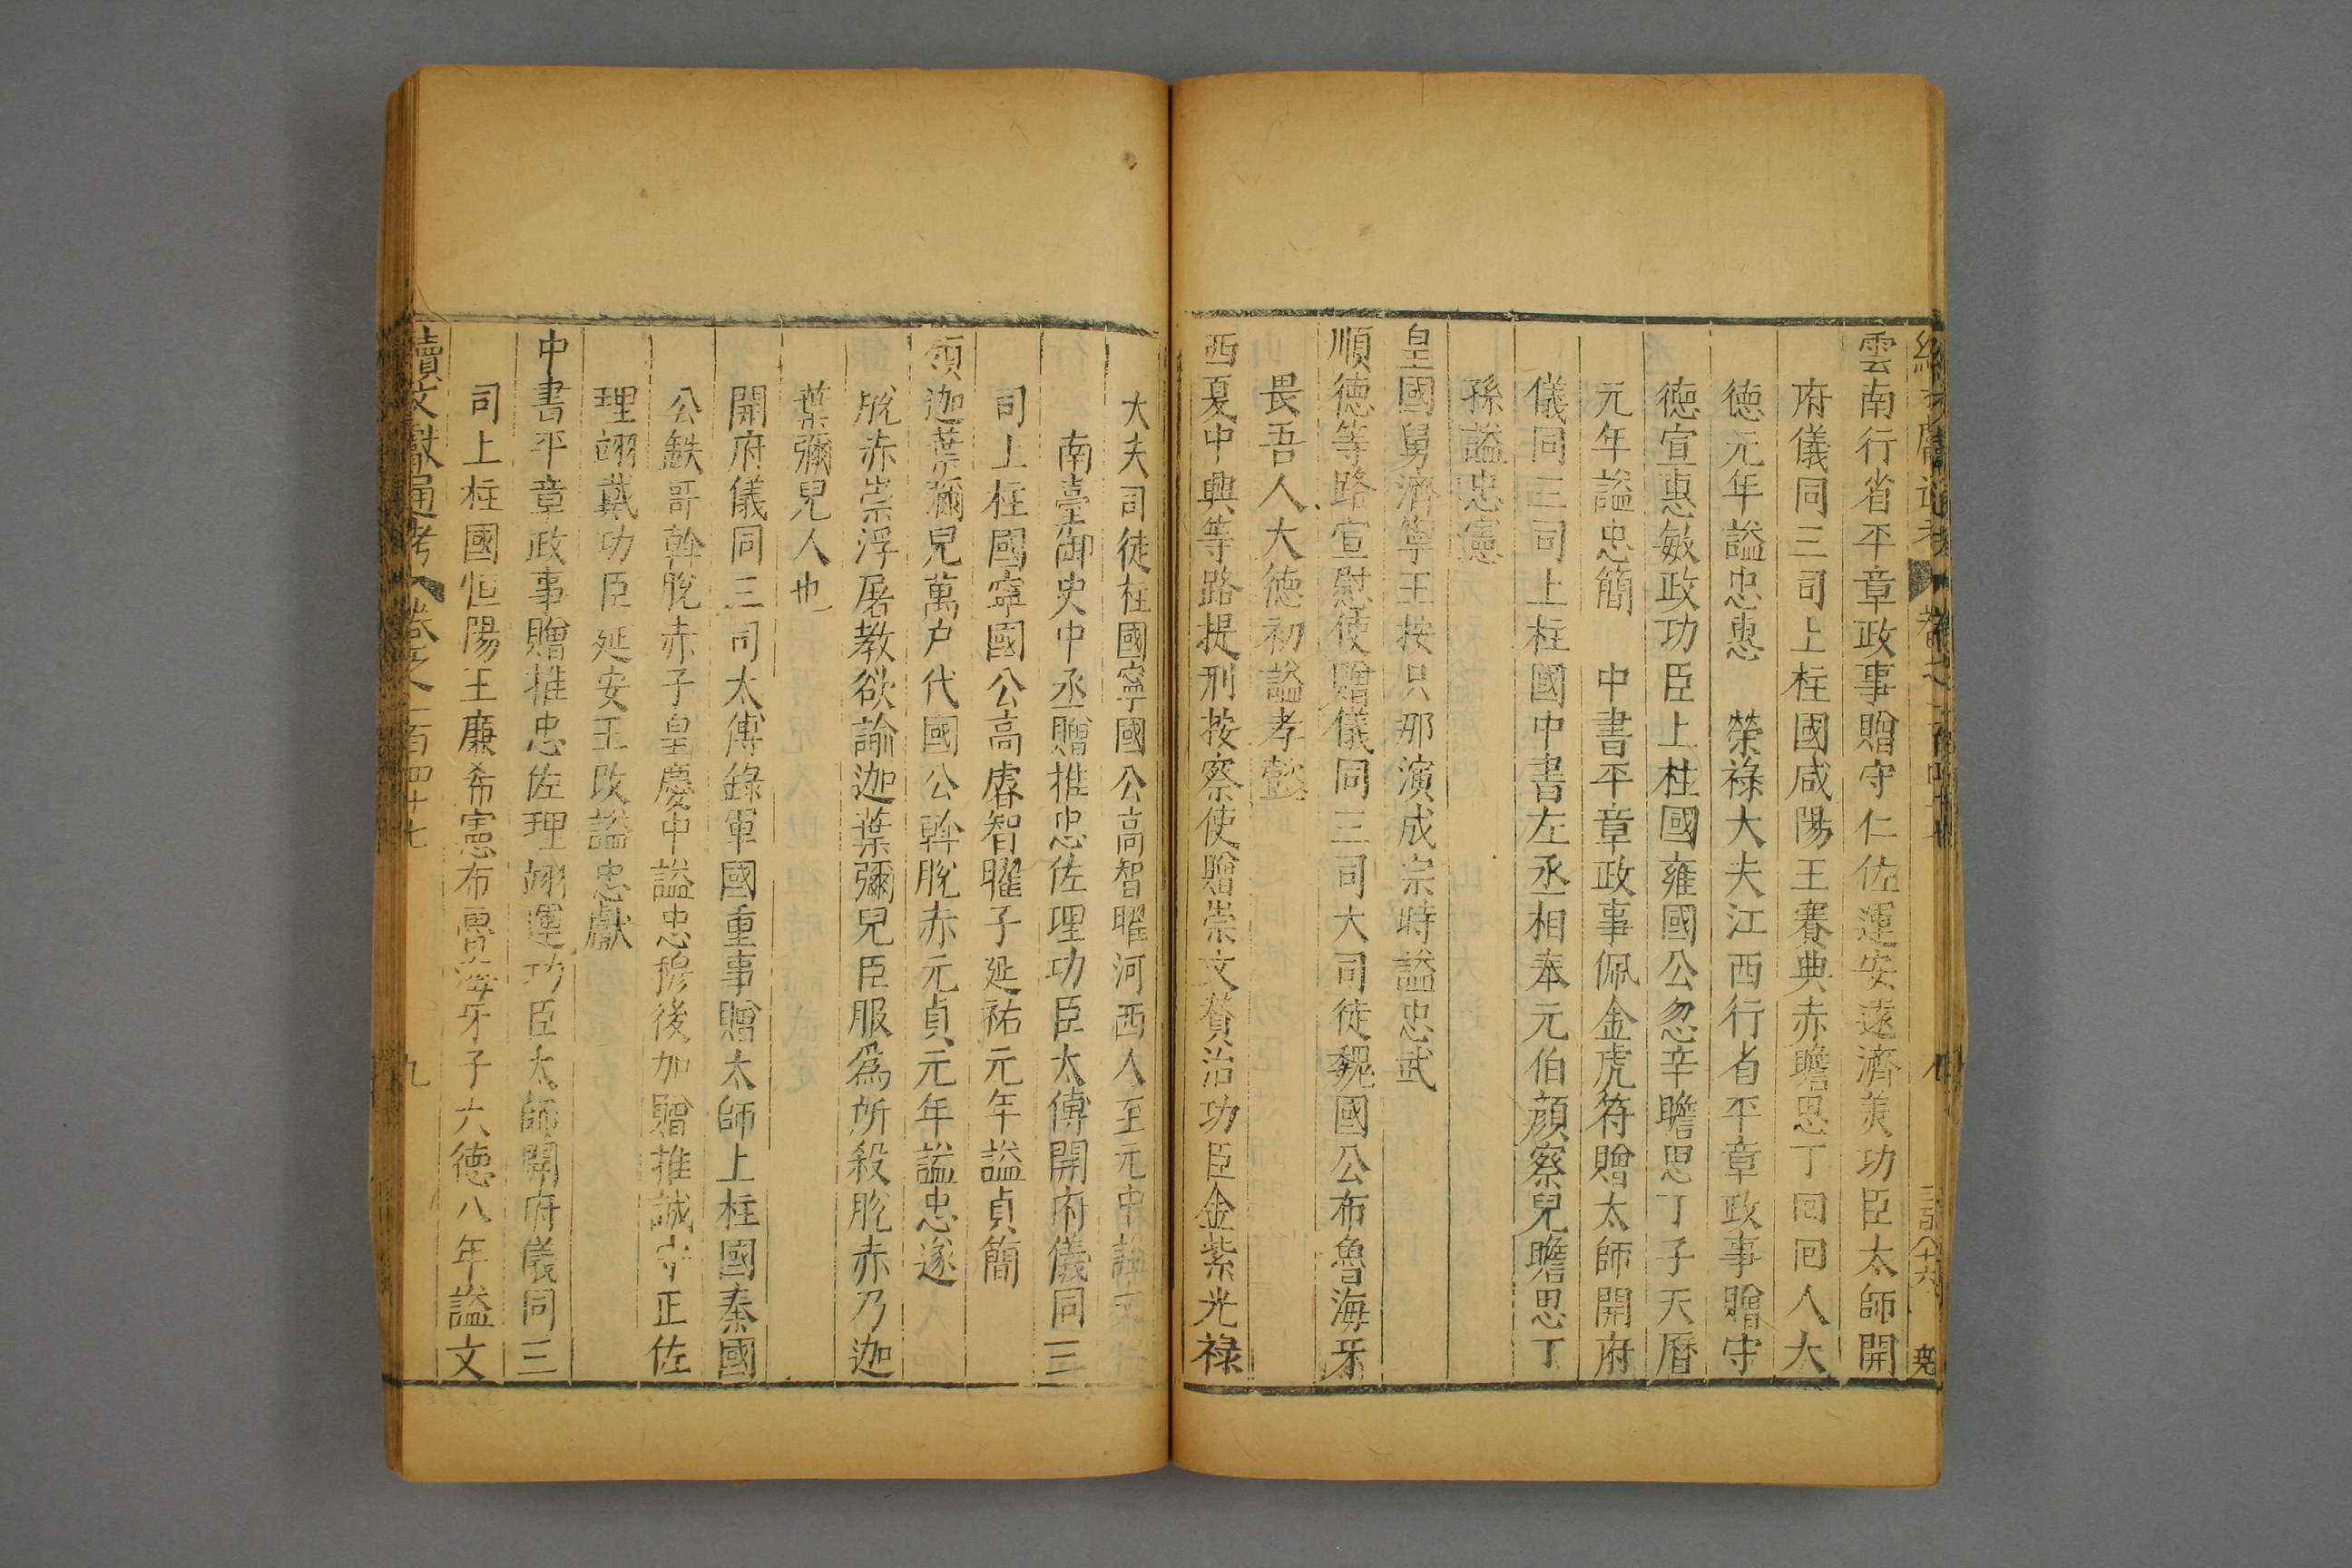 雲南行省平章政事贈守仁佐運安遠濟美功臣太師開
府儀同三司上柱國咸陽王賽典赤瞻思丁回回人大
德元年謚忠惠 榮祿大夫江西行省平章政事贈守
德宣惠敏政功臣上柱國雍國公忽辛瞻思丁子天曆
元年謚忠簡 中書平章政事佩金虎符贈太師開府
儀同三司上柱國中書左丞相奉元伯顏察兒瞻思丁
孫謚忠憲
皇國舅濟寧王按只那演成宗時謚忠武
順德等路宣慰使贈儀同三司大司徒魏國公布魯海牙
畏吾人大德初謚孝懿
西夏中興等路提刑按察使贈崇文贊治功臣金紫光祿
大夫司徒柱國寧國公高智耀河西人至元中謚文
南臺御史中丞贈推忠佐理功臣太傅開府儀同三
司上柱國寧國公高睿智耀子延祐元年謚貞簡
領迦葉彌兒萬戶代國公斡脫赤元貞元年謚忠遂
脫赤崇浮屠教欲諭迦葉彌兒臣服為所殺脫赤乃迦
葉彌兒人也
開府儀同三司太傅錄軍國重事贈太師上柱國秦國
公鐵哥斡脫赤子皇慶中謚忠穆後加贈推誠守正佐
理翊戴功臣延安王改謚忠獻
中書平章政事贈推忠佐理翊運功臣太師開府儀同三
司上柱國恒陽王廉希憲布魯海牙子大德八年謚文
續文獻通考 卷之一百四十七 九